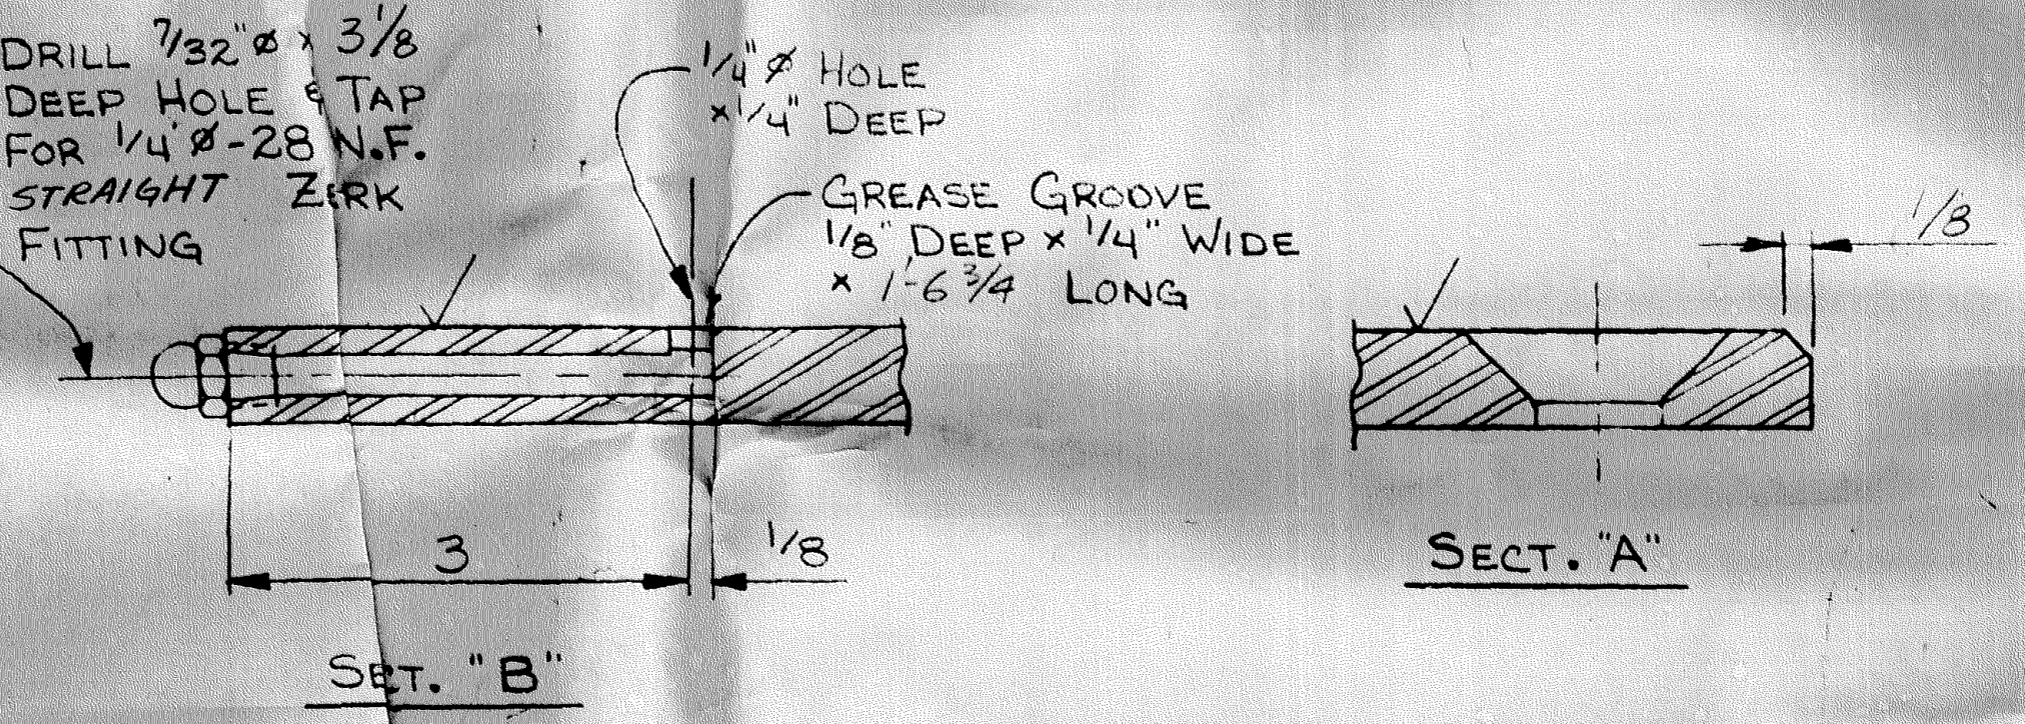 DRILL 7/32"ø x 3 1/8
DEEP HOLE & TAP
FOR 1/4"ø-28 N.F.
STRAIGHT ZERK
FITTING
1/4"ø HOLE
x 1/4" DEEP
GREASE GROOVE
1/8" DEEP x 1/4" WIDE
x 1'-6 3/4 LONG
1/8
3
1/8
SECT. "A"
SET. "B"